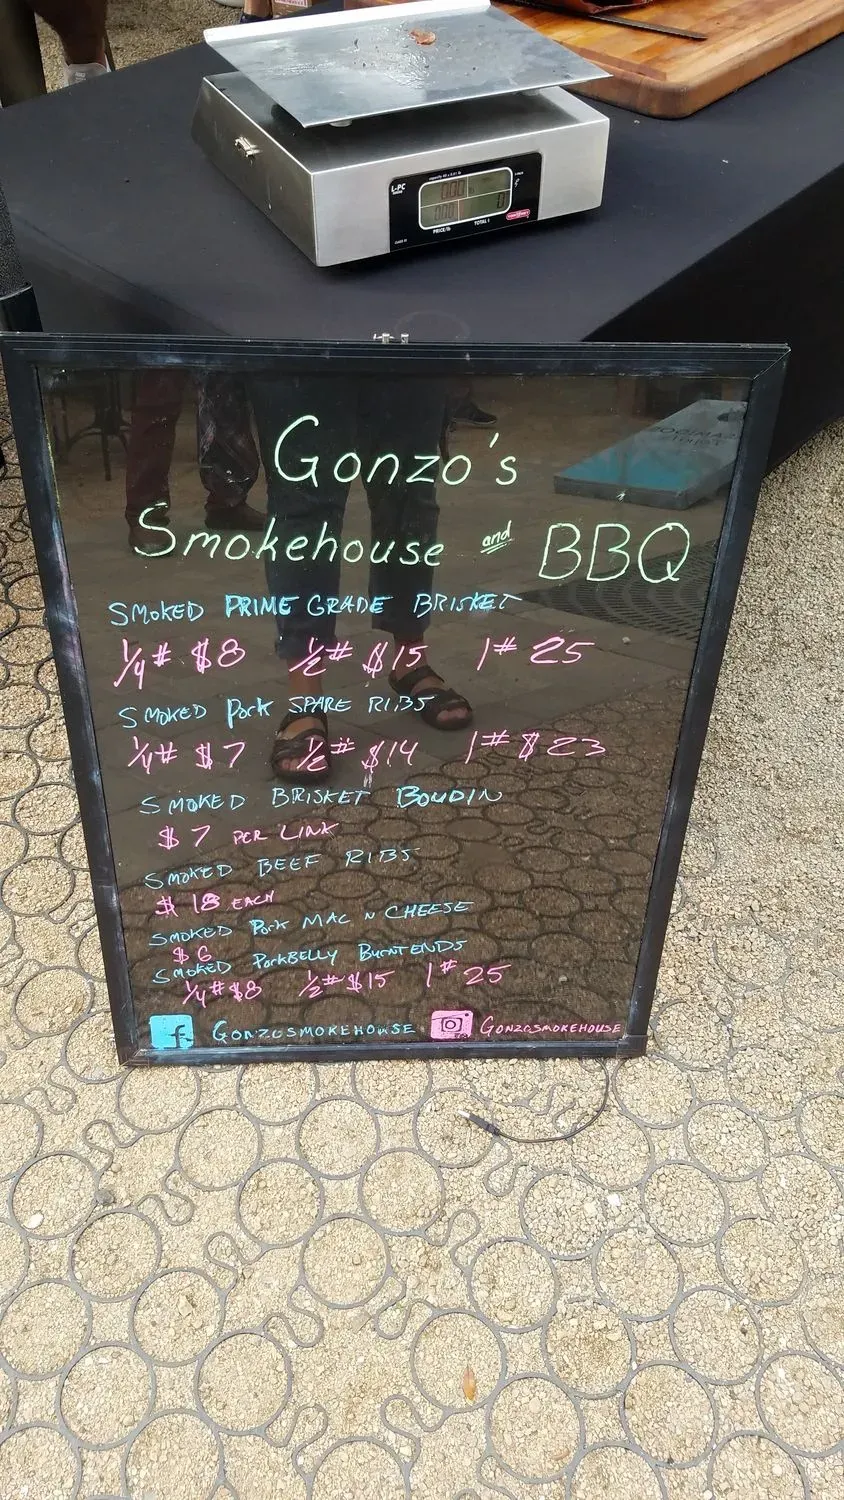 L-PC
capacity 60 x 0.01 lb
PRICE/lb TOTAL $
CLASS III
Gonzo's
Smokehouse and BBQ
SMOKED PRIME GRADE BRISKET
1/4# $8 1/2# $15 1# 25
SMOKED Pork SPARE RIBS
1/4# $7 1/2# $14 1# $23
SMOKED BRISKET BOUDIN
$7 PER LINK
SMOKED BEEF RIBS
$18 EACH
SMOKED Pork MAC N CHEESE
$6
SMOKED PorkBELLY BURNT ENDS
1/4# $8 1/2# $15 1# 25
f GONZOSMOKEHOUSE GONZOSMOKEHOUSE